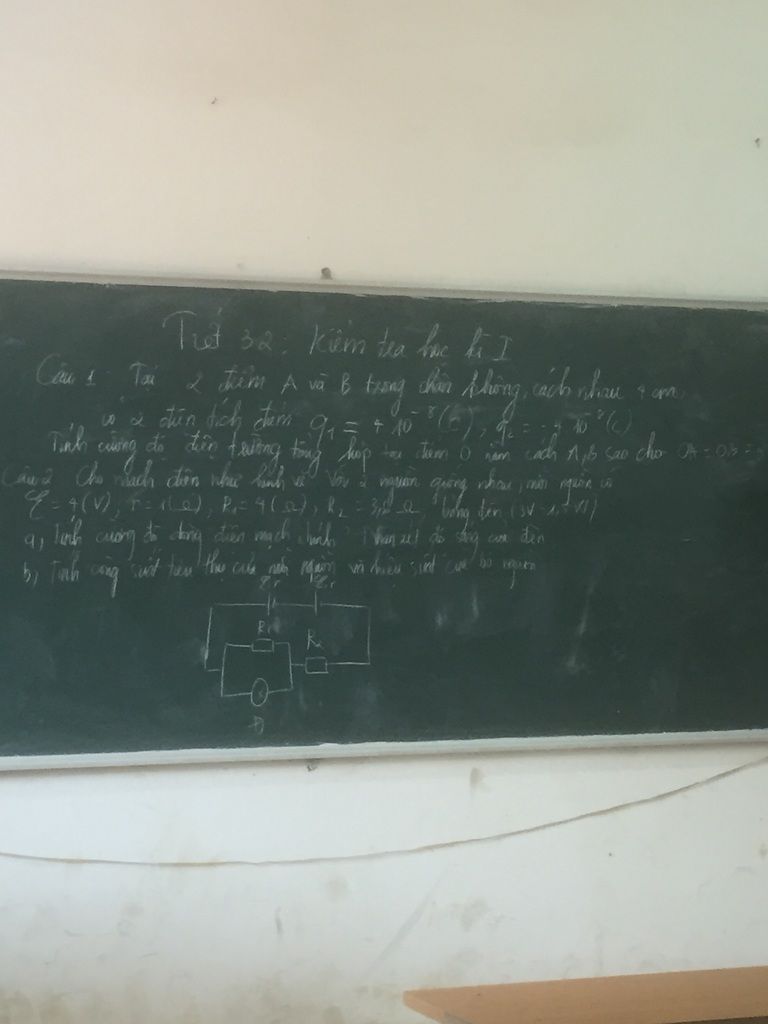 Tiết 32: Kiểm tra học kì I
Câu 1: Tại 2 điểm A và B trong chân không, cách nhau 4 cm,
có 2 điện tích điểm q1 = 4 10⁻⁸ (C), q2 = -4 10⁻⁸ (C)
Tính cường độ điện trường tổng hợp tại điểm O nằm cách A, B sao cho OA = OB =
Câu 2 Cho mạch điện như hình vẽ với 2 nguồn giống nhau, mỗi nguồn có
ξ = 4 (V), r = 1 (Ω), R1 = 4 (Ω), R2 = Ω bóng đèn
a, Tính cường độ dòng điện mạch chính Nhận xét độ sáng của đèn
b, Tính công suất tiêu thụ của mỗi nguồn và hiệu suất của bộ nguồn
R1
R2
Đ